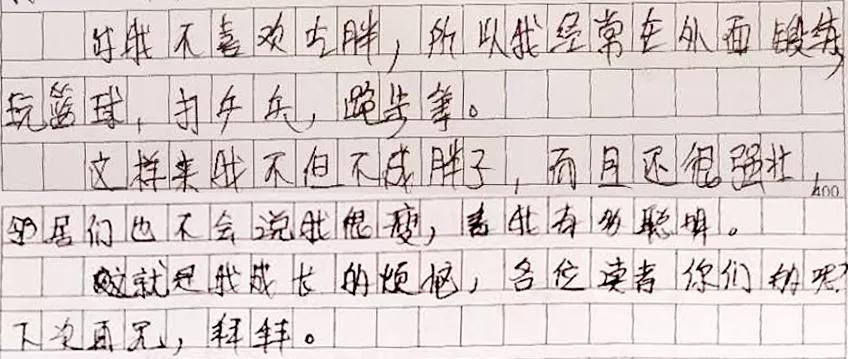 但我不喜欢吃胖，所以我经常在外面锻练，
玩篮球，打乒乓，跑步等。
这样来我不但不成胖子，而且还很强壮，
400
邻居们也不会说我很瘦，看我有多聪明。
这就是我成长的烦恼，各位读者你们的呢？
下次再见，拜拜。